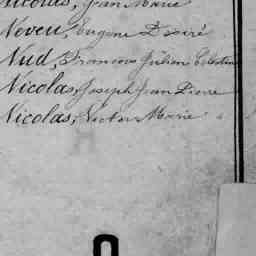 Nicolas, Jean Marie
Neveu, Eugène Désiré
Nud, François Julien Célestin
Nicolas, Joseph Jean Pierre
Nicolas, Victor Marie